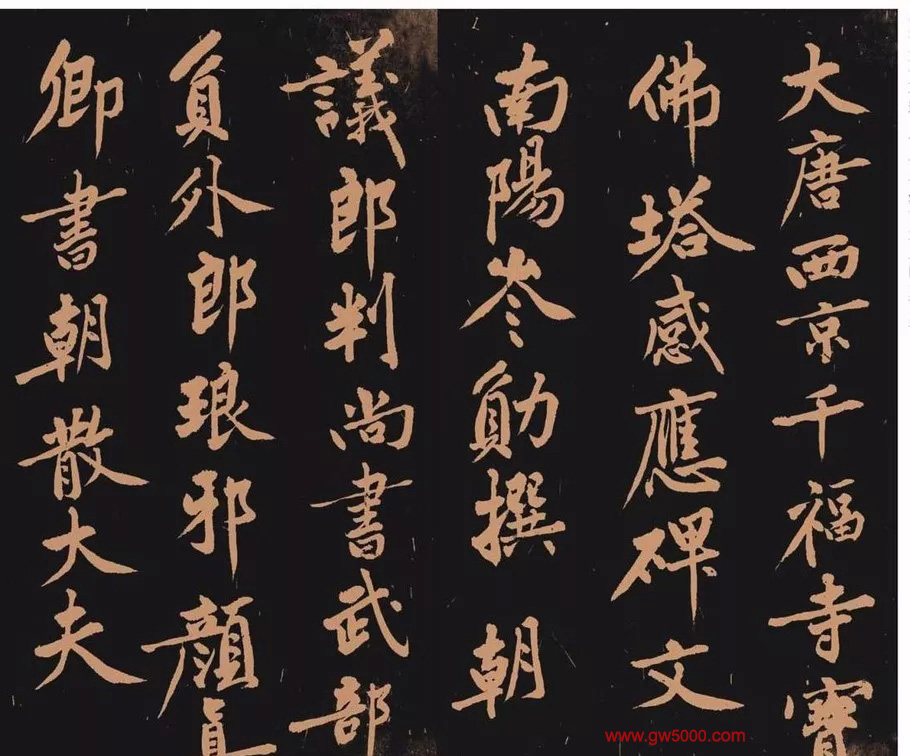 大唐西京千福寺寶
佛塔感應碑文
南陽岑勛撰 朝
議郎判尚書武部
員外郎琅邪顏真
卿書朝散大夫
www.gw5000.com